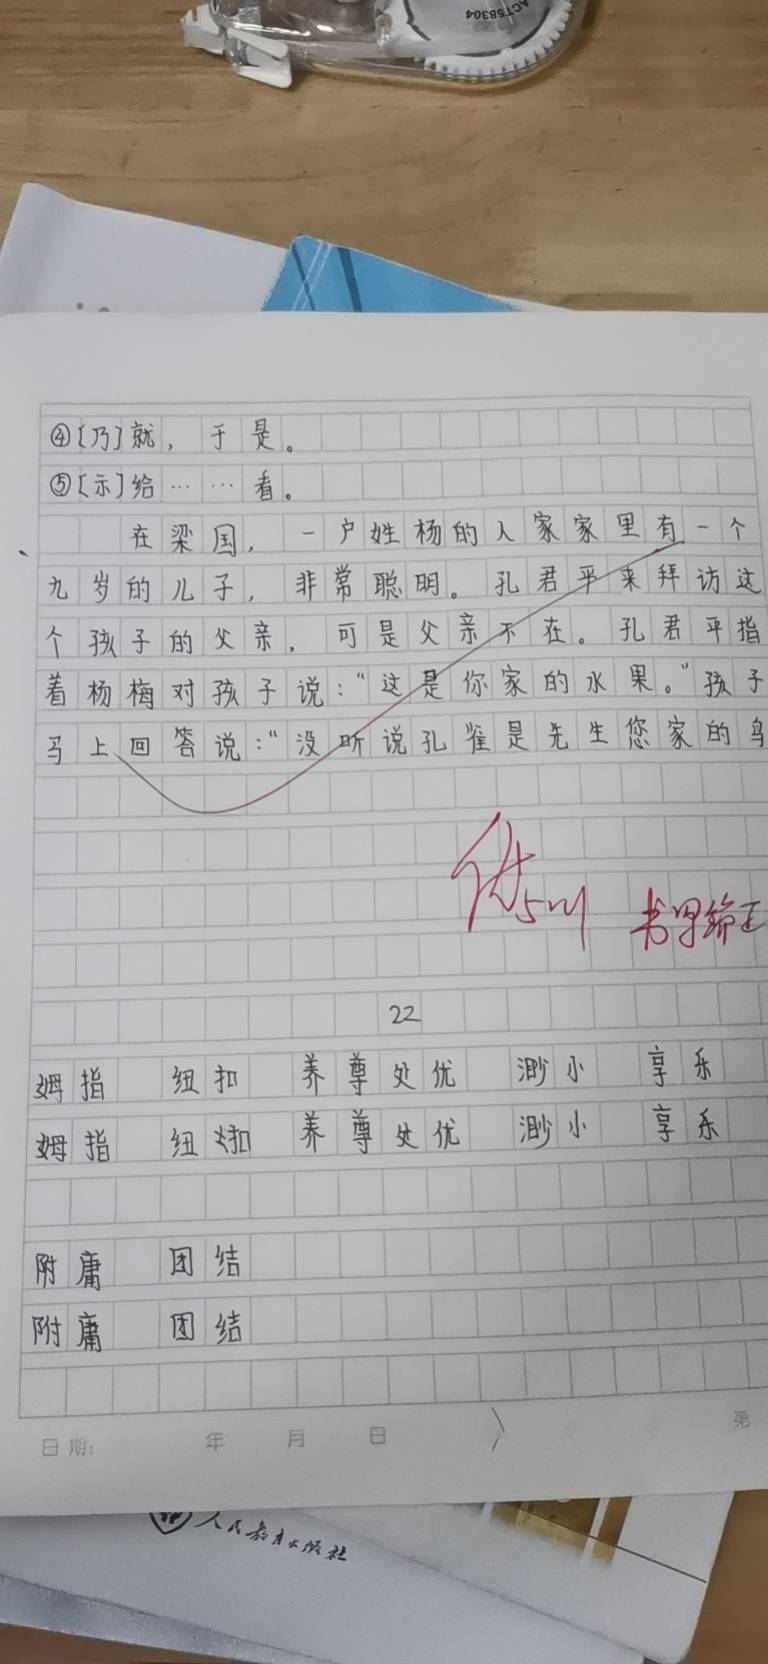 ACT58304
④[乃]就，于是。
⑤[示]给……看。
在梁国，一户姓杨的人家家里有一个
九岁的儿子，非常聪明。孔君平来拜访这
个孩子的父亲，可是父亲不在。孔君平指
着杨梅对孩子说：“这是你家的水果。”孩子
马上回答说：“没听说孔雀是先生您家的鸟
22
姆指 纽扣 养尊处优 渺小 享乐
姆指 纽扣 养尊处优 渺小 享乐
附庸 团结
附庸 团结
日期： 年 月 日 第
人民教育出版社